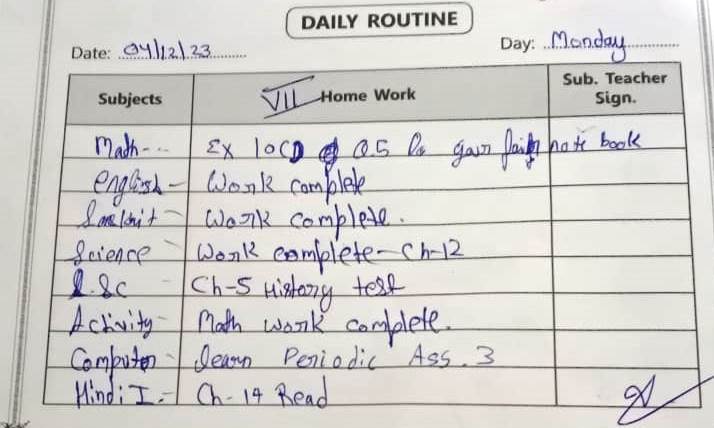 DAILY ROUTINE
Date: 04/12/23 Day: Monday
Subjects VII Home Work Sub. Teacher Sign.
Math-- Ex 10 Q.5 in your fair note book
English - Work complete
Work complete.
Science - Work complete - Ch-12
S.Sc Ch-5 History test
Activity - Math work complete.
Computer - learn Periodic Ass. 3
Hindi I - Ch-14 Read